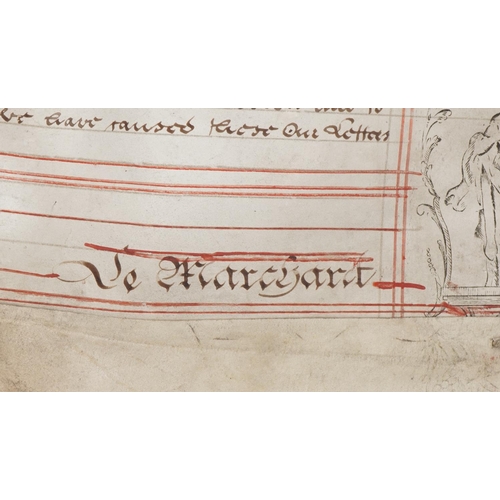 we have caused these Our Letters
Le Marchant